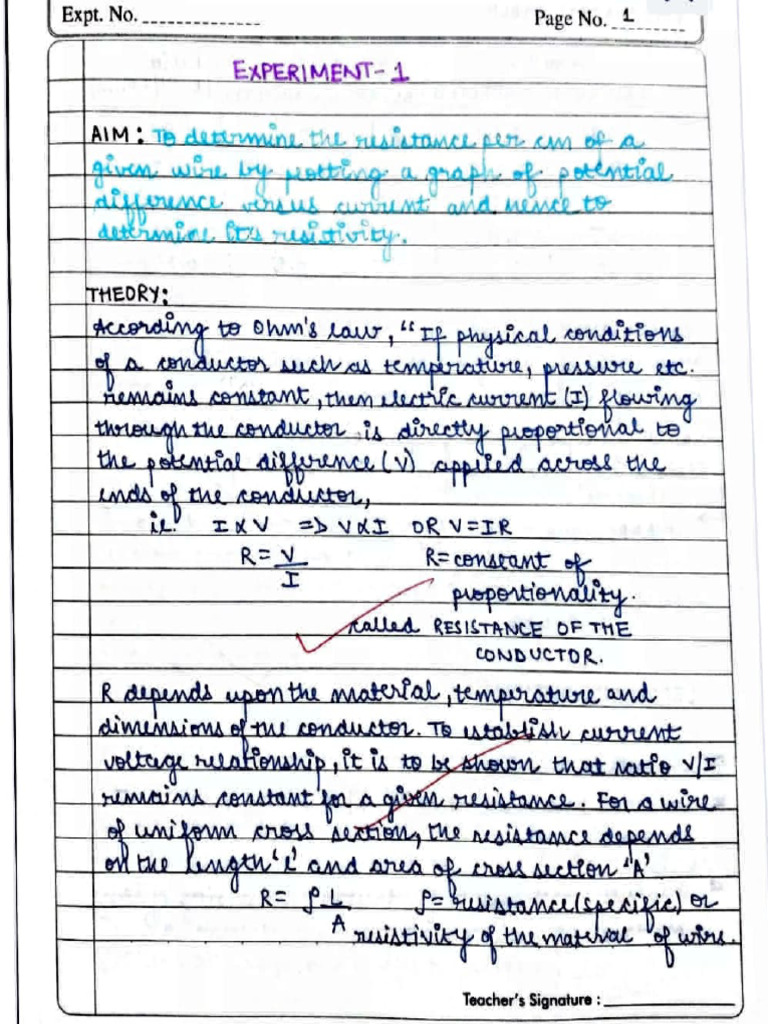 Expt. No. ____________
Page No. 1
EXPERIMENT-1
AIM: To determine the resistance per cm of a
given wire by plotting a graph of potential
difference versus current and hence to
determine it's resistivity.
THEORY:
According to Ohm's law, "If physical conditions
of a conductor such as temperature, pressure etc.
remains constant, then electric current (I) flowing
through the conductor is directly proportional to
the potential difference (V) applied across the
ends of the conductor,
ie. I ∝ V => V ∝ I OR V=IR
R = V/I R= constant of
proportionality.
called RESISTANCE OF THE
CONDUCTOR.
R depends upon the material, temperature and
dimensions of the conductor. To establish current
voltage relationship, it is to be shown that ratio V/I
remains constant for a given resistance. For a wire
of uniform cross section, the resistance depends
on the length 'L' and area of cross section 'A'
R = ρ L/A ρ = resistance (specific) or
resistivity of the material of wire.
Teacher's Signature : ____________